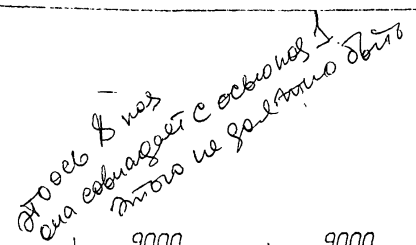 это ось 8 поз
она совпадает с осью поз 1
этого не должно быть
9000 9000